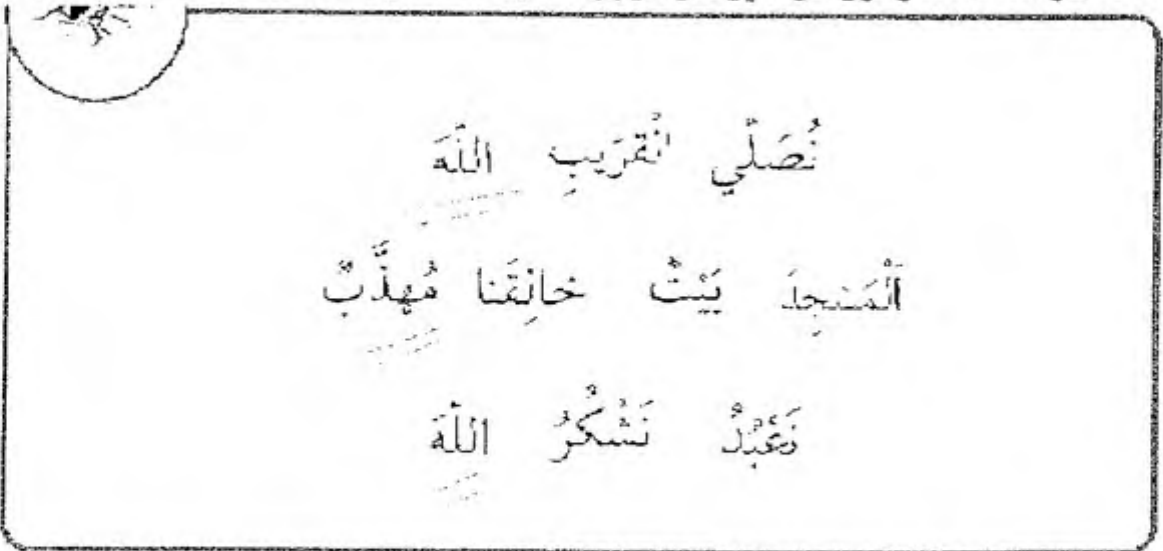 نُصَلِّي انْقَرَيبِ اللَّهَ
اَلْمَسْجِدَ بَيْتُ خَالِقَنا مُهِذَّبٌ
نَعْبُدُ نَشْكُرُ اللَّهَ